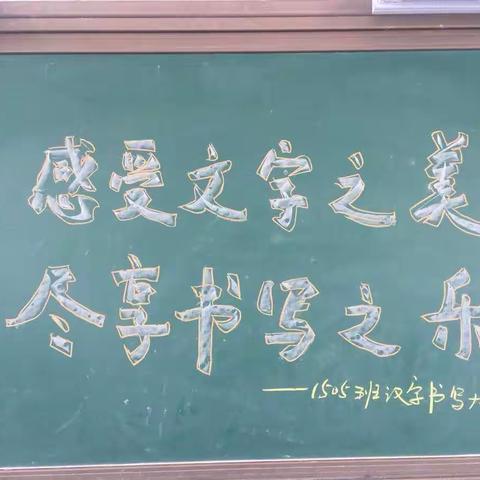 感受文字之美
尽享书写之乐
——1505班汉字书写